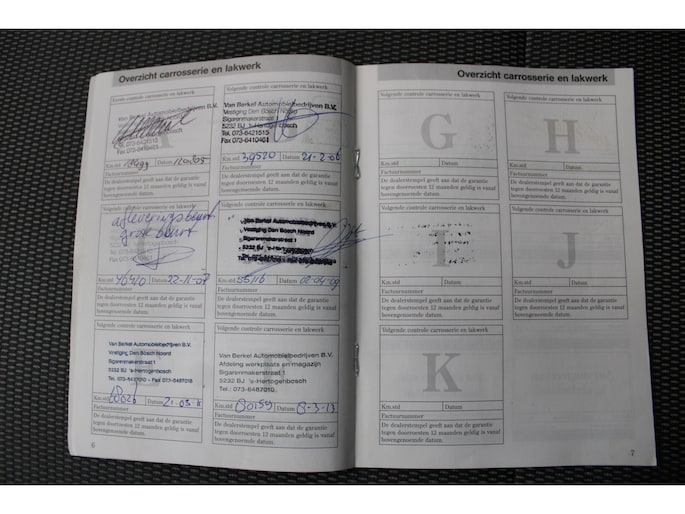 Overzicht carrosserie en lakwerk
Eerste controle carrosserie en lakwerk
Vestiging Den Bosch Noord
Sigarenmakerstraat 1
5232 BJ 's-Hertogenbosch
Tel. 073-6421515
Fax 073-6410463
Km.std Datum
Factuurnummer
De dealerstempel geeft aan dat de garantie
tegen doorroesten 12 maanden geldig is vanaf
bovengenoemde datum.
Volgende controle carrosserie en lakwerk
Van Berkel Automobielbedrijven B.V.
Vestiging Den Bosch Noord
Sigarenmakerstraat 1
5232 BJ 's-Hertogenbosch
Tel. 073-6421515
Fax 073-6410463
Km.std 39520 Datum 21-2-06
Factuurnummer
De dealerstempel geeft aan dat de garantie
tegen doorroesten 12 maanden geldig is vanaf
bovengenoemde datum.
Volgende controle carrosserie en lakwerk
afleveringsbeurt
grote beurt
Km.std Datum 22-11-07
Factuurnummer
De dealerstempel geeft aan dat de garantie
tegen doorroesten 12 maanden geldig is vanaf
bovengenoemde datum.
Volgende controle carrosserie en lakwerk
Van Berkel Automobielbedrijven B.V.
Vestiging Den Bosch Noord
Sigarenmakerstraat 1
5232 BJ 's-Hertogenbosch
Km.std 55116 Datum 02-04-09
Factuurnummer
De dealerstempel geeft aan dat de garantie
tegen doorroesten 12 maanden geldig is vanaf
bovengenoemde datum.
Volgende controle carrosserie en lakwerk
Van Berkel Automobielbedrijven B.V.
Vestiging Den Bosch Noord
Sigarenmakerstraat 1
5232 BJ 's-Hertogenbosch
Km.std Datum
Factuurnummer
De dealerstempel geeft aan dat de garantie
tegen doorroesten 12 maanden geldig is vanaf
bovengenoemde datum.
Volgende controle carrosserie en lakwerk
Van Berkel Automobielbedrijven B.V.
Afdeling werkplaats en magazijn
Sigarenmakerstraat 1
5232 BJ 's-Hertogenbosch
Tel.: 073-6487010
Km.std 80159 Datum 8-3-13
Factuurnummer
De dealerstempel geeft aan dat de garantie
tegen doorroesten 12 maanden geldig is vanaf
bovengenoemde datum.
6
Overzicht carrosserie en lakwerk
Volgende controle carrosserie en lakwerk
G
Km.std Datum
Factuurnummer
De dealerstempel geeft aan dat de garantie
tegen doorroesten 12 maanden geldig is vanaf
bovengenoemde datum.
Volgende controle carrosserie en lakwerk
H
Km.std Datum
Factuurnummer
De dealerstempel geeft aan dat de garantie
tegen doorroesten 12 maanden geldig is vanaf
bovengenoemde datum.
Volgende controle carrosserie en lakwerk
I
Km.std Datum
Factuurnummer
De dealerstempel geeft aan dat de garantie
tegen doorroesten 12 maanden geldig is vanaf
bovengenoemde datum.
Volgende controle carrosserie en lakwerk
J
Km.std Datum
Factuurnummer
De dealerstempel geeft aan dat de garantie
tegen doorroesten 12 maanden geldig is vanaf
bovengenoemde datum.
Volgende controle carrosserie en lakwerk
K
Km.std Datum
Factuurnummer
De dealerstempel geeft aan dat de garantie
tegen doorroesten 12 maanden geldig is vanaf
bovengenoemde datum.
7